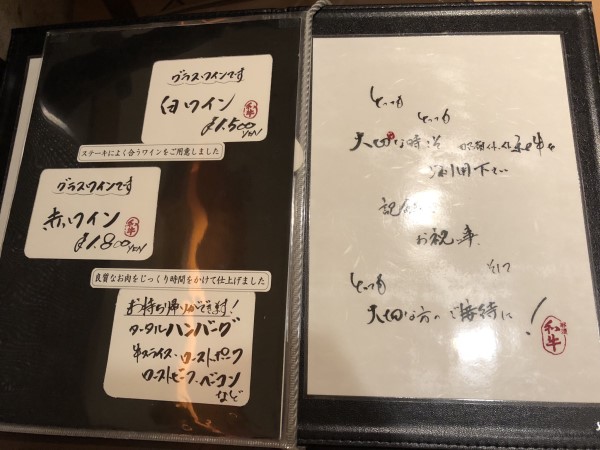 グラスワインです
白ワイン
¥1.500 YEN
和牛
ステーキによく合うワインをご用意しました
グラスワインです
赤ワイン
¥1.800 YEN
和牛
良質なお肉をじっくり時間をかけて仕上げました
お持ち帰りができます!
タータルハンバーグ
牛スライス・ローストポーク
ローストビーフ・ベーコン
など
とっても
とっても
大切な時こそ
ご利用下さい
記念
お祝事
そして
とっても
大切な方のご接待に!
和牛